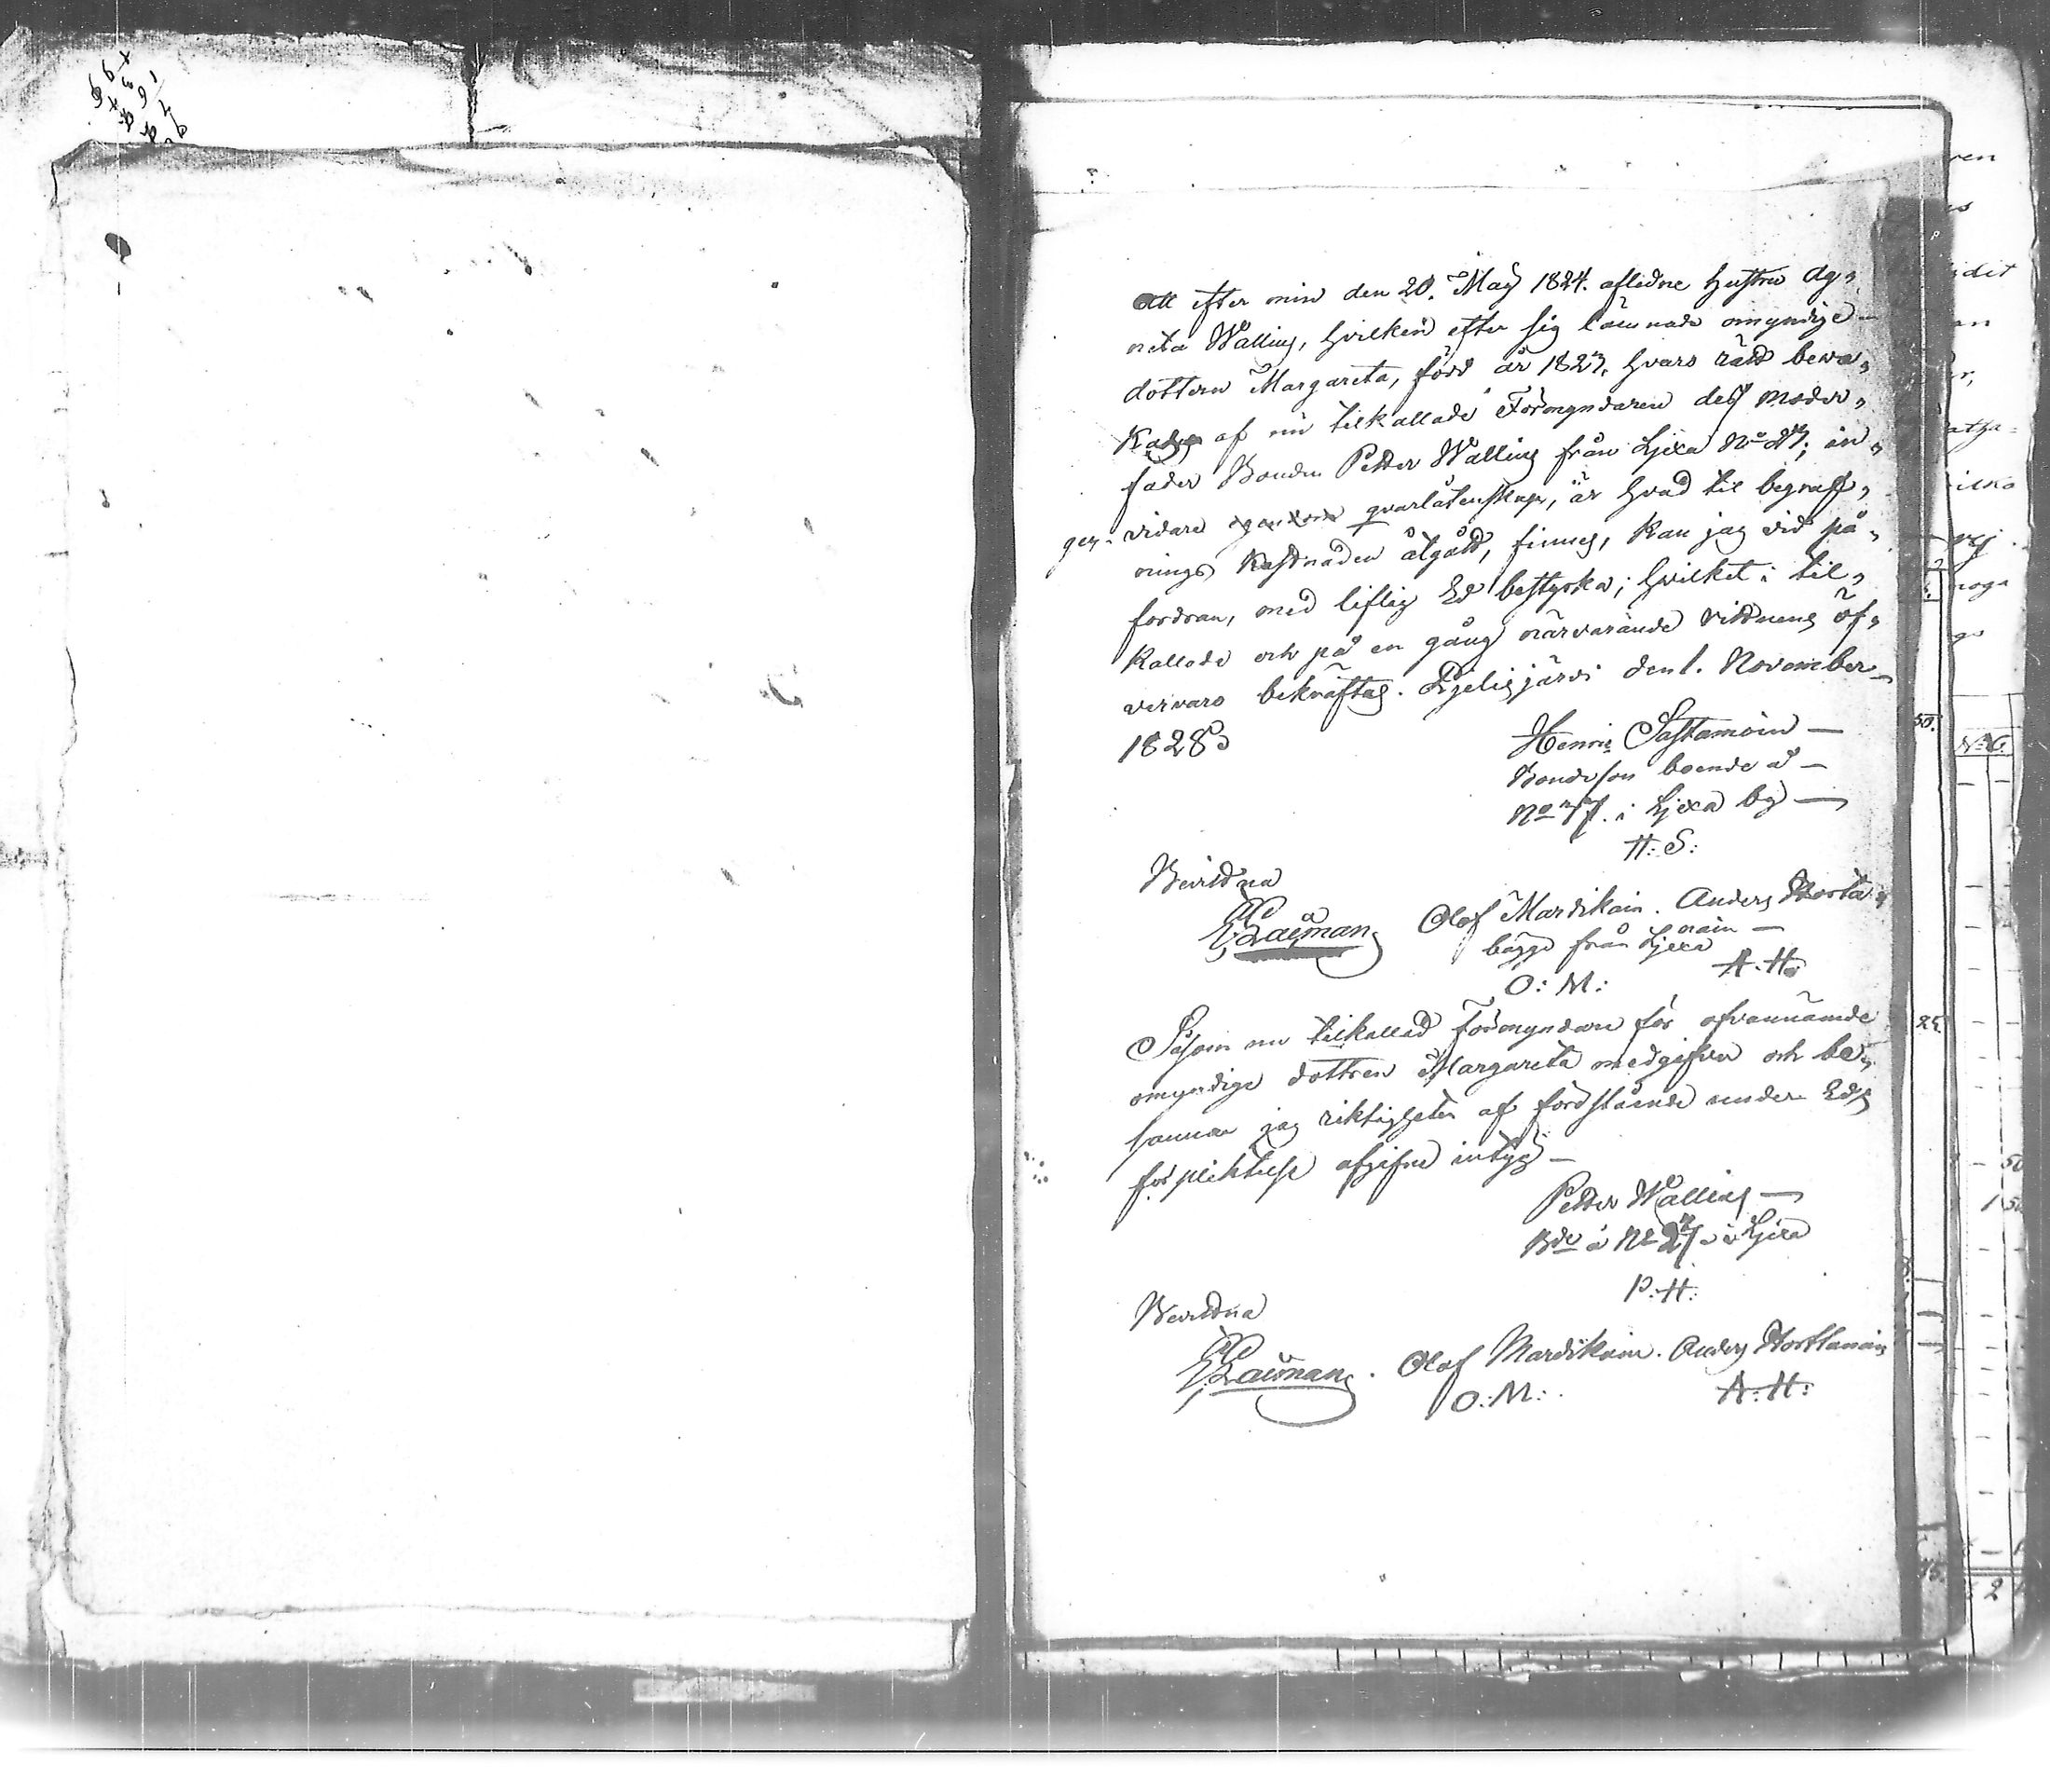 Att efter min den 20. Maÿ 1824. aflidne hustru Ag„
neta Walling, hvilken efter sig lämnade omyndige
dottern Margareta, född år 1823, hvars rätt beva„
kas af nu tilkallade Förmyndaren dess moder„
fader Bonden Petter Walling från Lyxa No 27, in„
gen vidare qvarlåtenskap, är hvad til begraf„
nings kostnaden åtgått, finnes, kan jag vid på„
fordran, med liflig Ed bestyrka; hvilket i til„
kallade och på en gång närvarande vittnens öf„
vervaro bekräftas. Pielisjärvi den 1. November
1828.
Henric Sastamoin
Bondeson boende å
No 77. i Lyxa by
H: S:
Bevittna
Laüman
Olof Mardikain. Anders Horta„
nain
bägge från Lyxa
O: M: A. H:
Såsom nu tilkallad Förmyndare för ofvannämde
omyndige dottren Margareta medgifver och be„
sannar jag riktigheten af förestående under Eds
förpliktelse afgifne intyg
Petter Walling
Bde å No 27 i Lyxa
P. H:
Bevittna
Laüman. Olof Mardikain. Anders Horttanain
O: M: A: H: